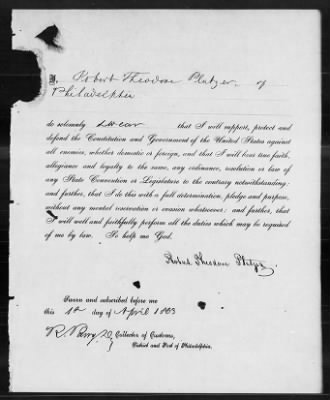 I, Robert Theodore Platzer, of
Philadelphia
do solemnly swear that I will support, protect and
defend the Constitution and Government of the United States against
all enemies, whether domestic or foreign, and that I will bear true faith,
allegiance and loyalty to the same, any ordinance, resolution or law of
any State Convention or Legislature to the contrary notwithstanding;
and further, that I do this with a full determination, pledge and purpose,
without any mental reservation or evasion whatsoever; and further, that
I will well and faithfully perform all the duties which may be required
of me by law. So help me God.
Robert Theodore Platzer
Sworn and subscribed before me
this 1st day of April 1863
Collector of Customs,
District and Port of Philadelphia.